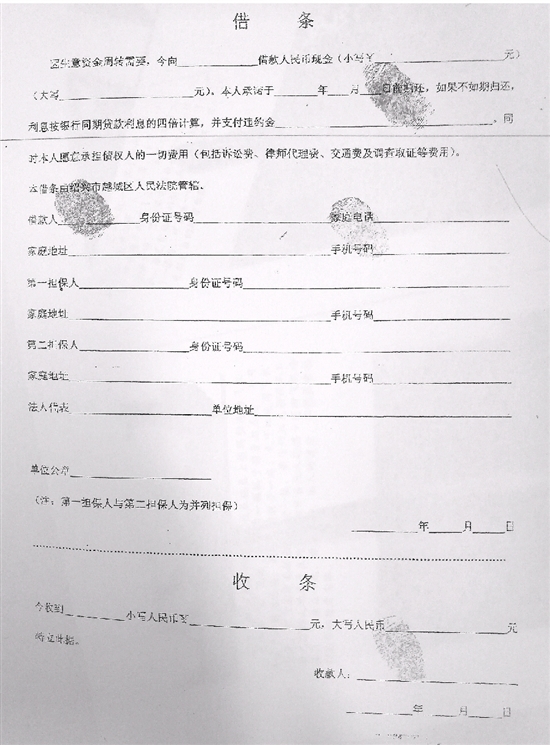 借 条
因生意资金周转需要，今向____________借款人民币现金（小写￥____________元）
（大写____________元）。本人承诺于______年____月____日前归还，如果不如期归还，
利息按银行同期贷款利息的四倍计算，并支付违约金____________。同
时本人愿意承担债权人的一切费用（包括诉讼费、律师代理费、交通费及调查取证等费用）。
本借条由绍兴市越城区人民法院管辖。
借款人____________身份证号码____________家庭电话____________
家庭地址____________手机号码____________
第一担保人____________身份证号码____________
家庭地址____________手机号码____________
第二担保人____________身份证号码____________
家庭地址____________手机号码____________
法人代表____________单位地址____________
单位公章____________
（注：第一担保人与第二担保人为并列担保）
______年____月____日
收 条
今收到________小写人民币￥____________元，大写人民币____________元
特立此据。
收款人：____________
______年____月____日